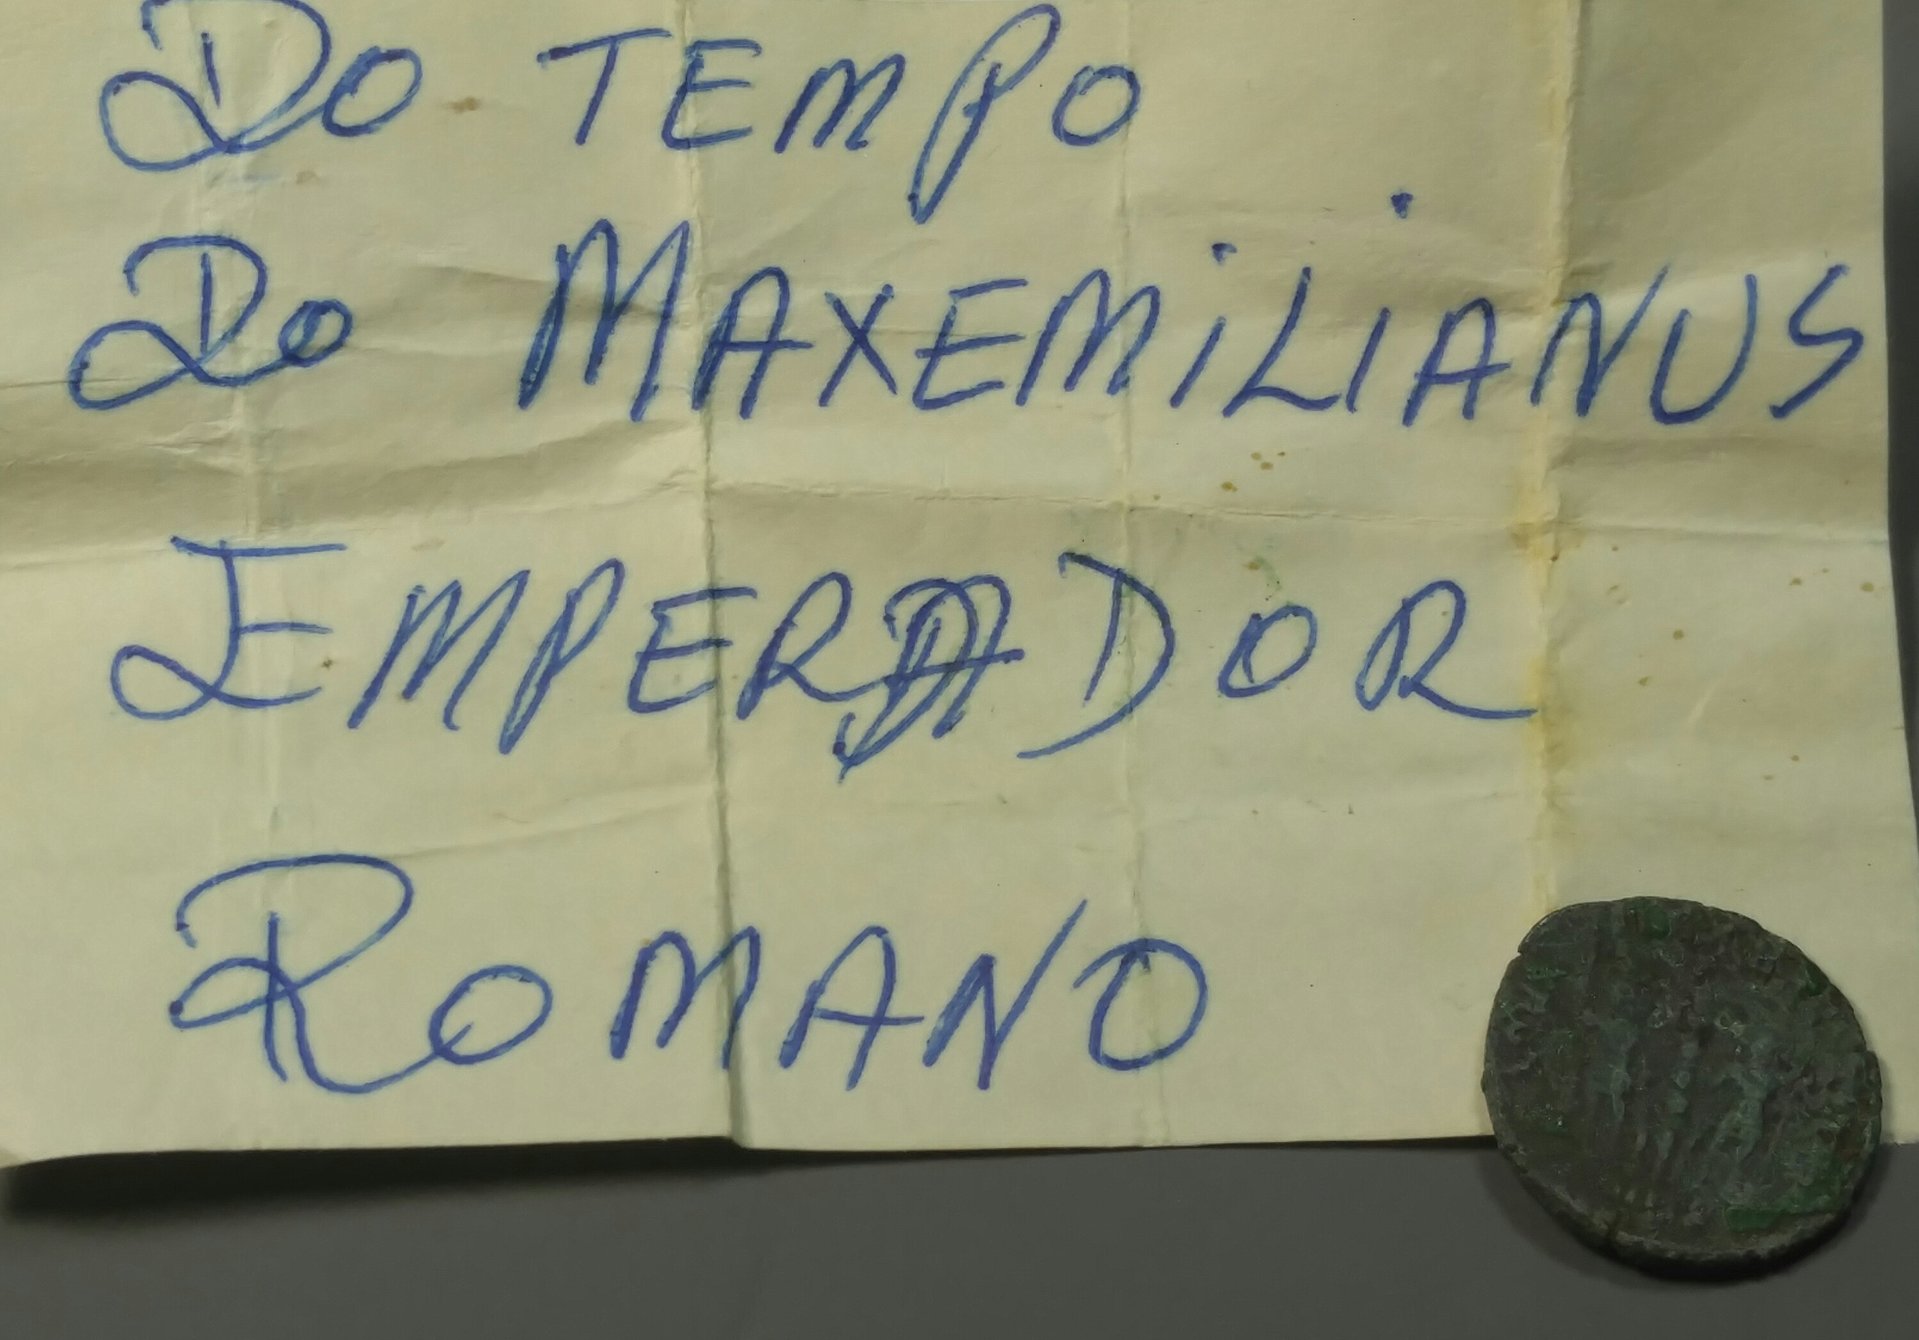 DO TEMPO
DO MAXEMiLiANUS
EMPERADOR
ROMANO